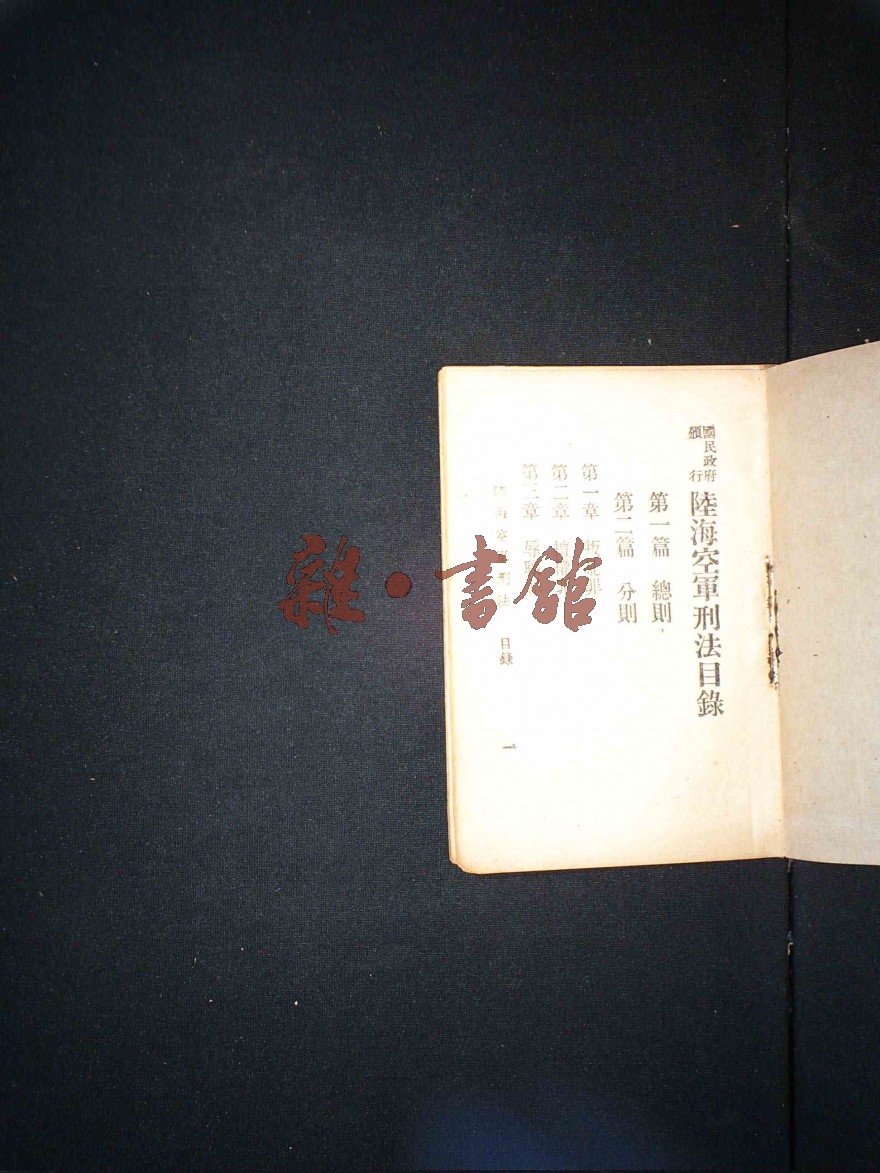 國民政府頒行 陸海空軍刑法目錄
第一篇 總則
第二篇 分則
第一章
第二章
第三章 辱職
陸海空軍刑法 目錄 一
雜·書館